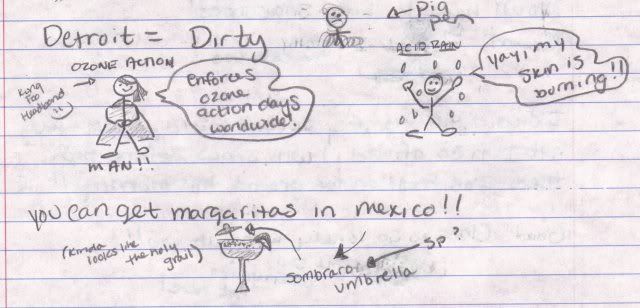 Detroit = Dirty
← Pig
Pen
OZONE ACTION
Kung
Foo
Headband
enforces
ozone
action days
worldwide!
mAN!!
ACID RAIN
yay, my
skin is
burning!!
you can get margaritas in mexico!!
(kinda
looks like
the holy
grail)
sombraro
umbrella
sp?